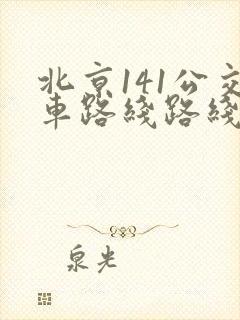 北京141公交
車路綫路綫
泉光